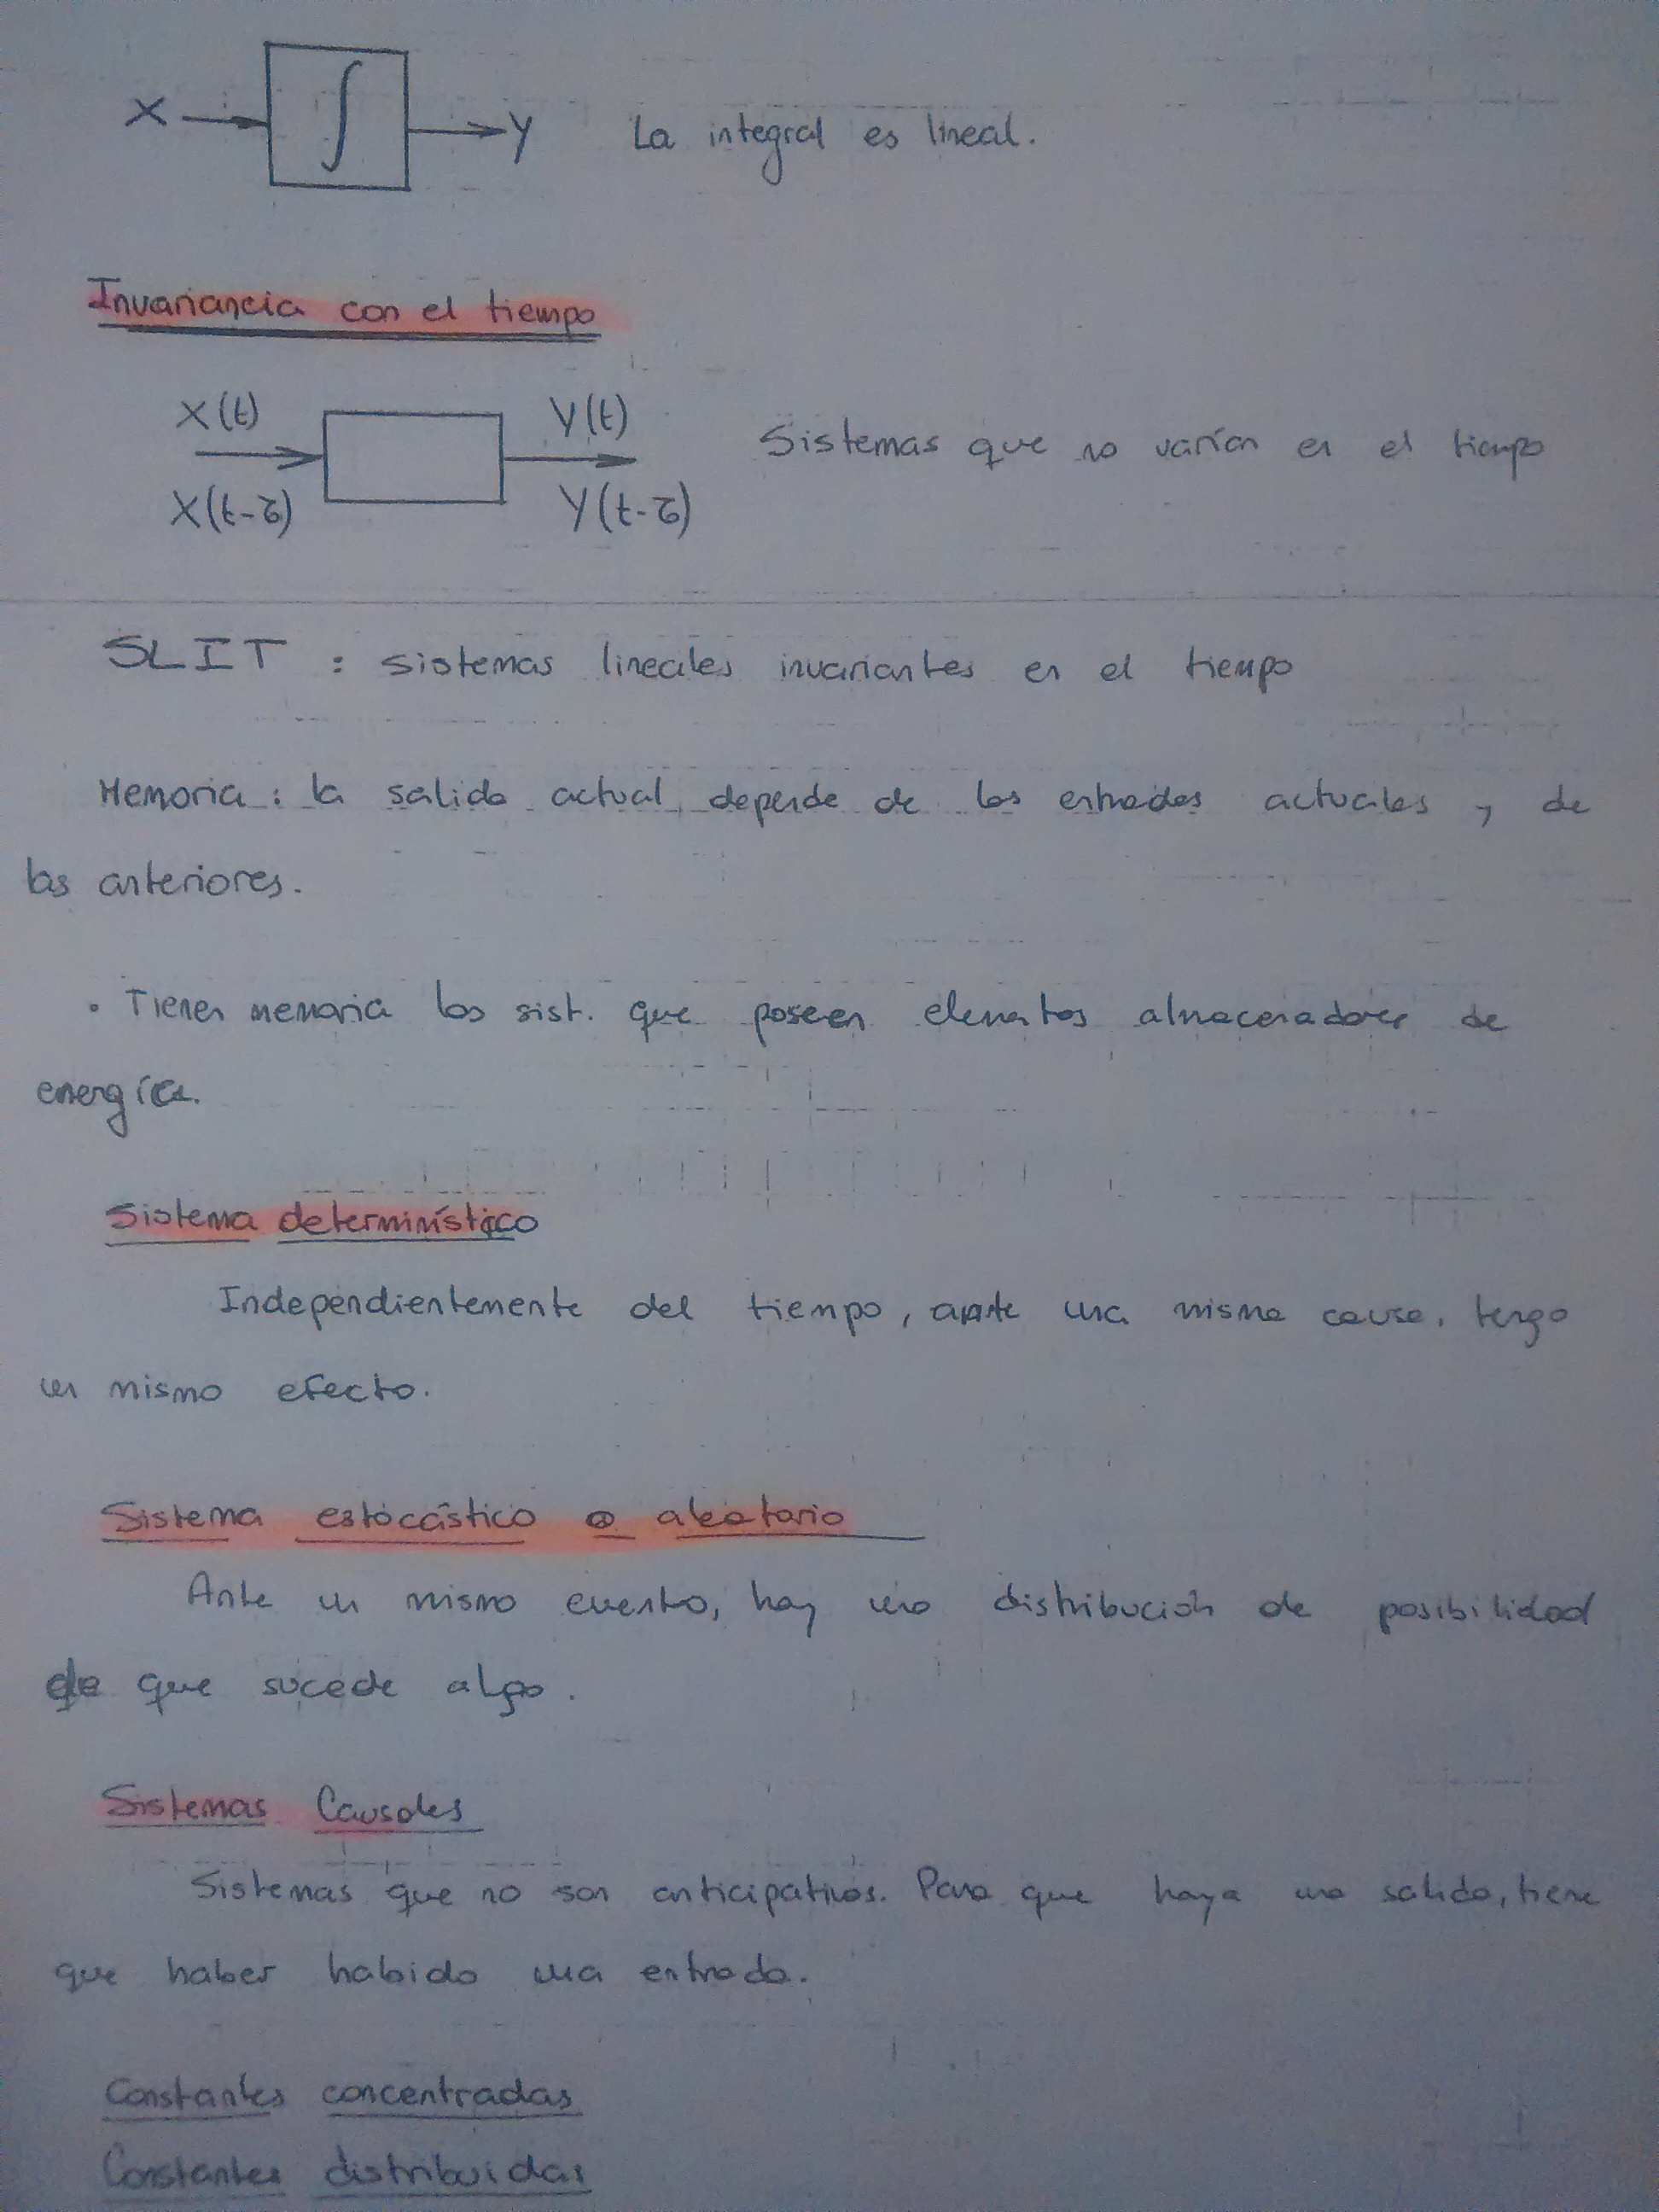 X → ∫ → Y La integral es lineal.
Invariancia con el tiempo
X(t) Y(t)
Sistemas que no varían en el tiempo
X(t-τ) Y(t-τ)
SLIT : sistemas lineales invariantes en el tiempo
Memoria : la salida actual depende de las entradas actuales y de
las anteriores.
• Tienen memoria los sist. que poseen elementos almacenadores de
energía.
Sistema determinístico
Independientemente del tiempo, ante una misma causa, tengo
un mismo efecto.
Sistema estocástico o aleatorio
Ante un mismo evento, hay una distribución de posibilidad
de que sucede algo.
Sistemas Causales
Sistemas que no son anticipativos. Para que haya una salida, tiene
que haber habido una entrada.
Constantes concentradas
Constantes distribuidas